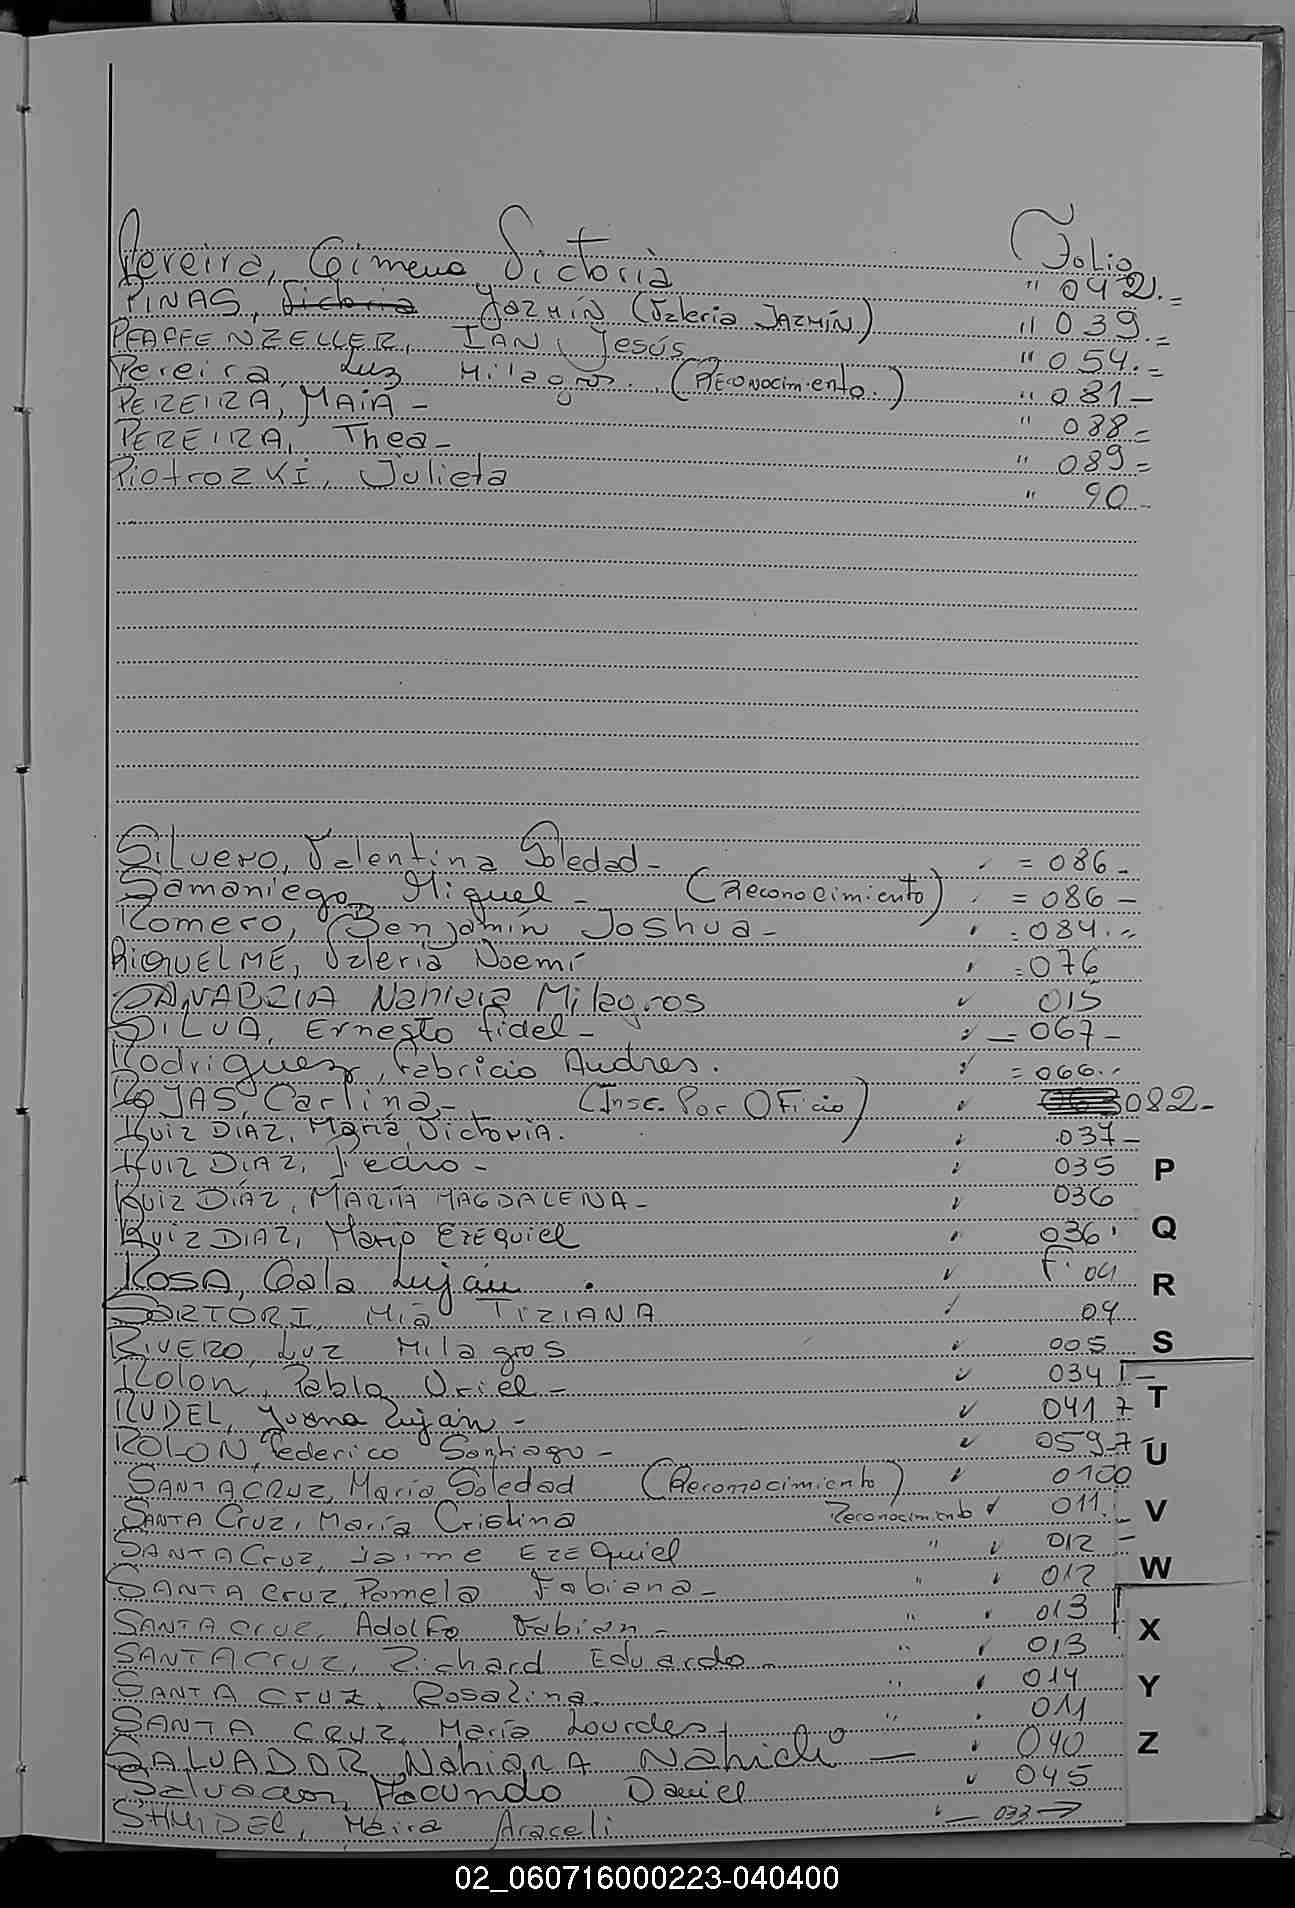 Pereira, Gimena Victoria Folio
" 042.=
PINAS, Victoria Yazmín (Valeria JAZMÍN) " 039.=
PFAFFENZELLER, IAN Jesús " 054.=
Pereira, Luz Milagros (Reconocimiento.) " 081-
PEREIRA, MAIA - " 088=
PEREIRA, Thea- " 089=
Piotrozki, Julieta " 90-
Silvero, Valentina Soledad- = 086-
Samaniego Miguel - (Reconocimiento) = 086-
Romero, Benjamín Joshua- 084
RIQUELME, Valeria Noemí =076
SANABRIA Nahiara Milagros 015
SILVA, Ernesto fidel- =067-
Rodriguez, Fabricio Andres. =066..
ROJAS, Carlina- (Insc. Por Oficio) 082-
RUIZ DIAZ, María Victoria. 037-
RUIZ DIAZ, Pedro- 035
P
RUIZ DÍAZ, MARÍA MAGDALENA- 036
RUIZ DIAZ, Mario EZEQUIEL 036
Q
ROSA, Gala Luján. F. 04
R
SARTORI, Mía TIZIANA 04
RIVERO, Luz Milagros 005
S
Rolon, Pablo Uriel- 034
T
RUDEL, Juana Luján- 041
ROLON, Federico Santiago- 059
U
SANTACRUZ, María Soledad (Reconocimiento) 0100
SANTA Cruz, María Cristina Reconocimiento 011
V
SANTACruz, Jaime EZEQuiel " 012-
SANTA Cruz, Pamela Fabiana- " 012
W
SANTA Cruz, Adolfo Fabian- " 013
X
SANTACruz, Richard Eduardo- " 013
SANTA CRUZ, Rosalina. " 014
Y
SANTA CRUZ, María Lourdes " 011
SALVADOR, Nahiara Nahiclé - 040
Z
Salvador, Facundo Daniel 045
SHMIDEL, Maira Araceli - 033
02_060716000223-040400